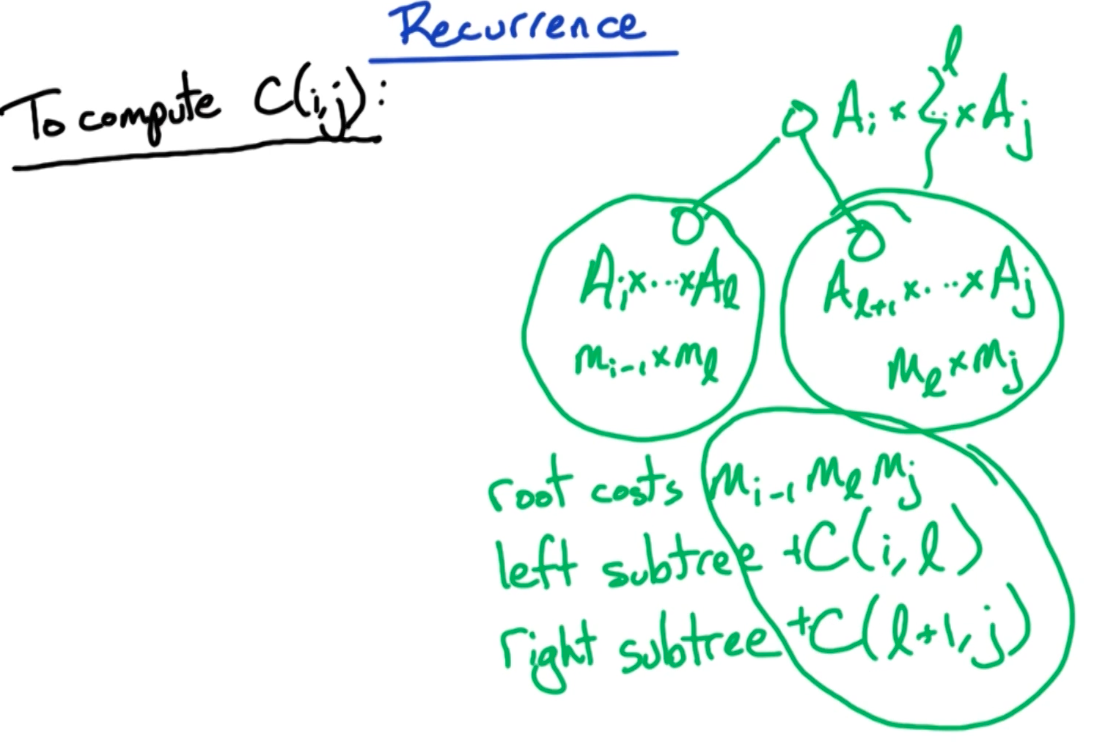 Recurrence
To compute C(i,j):
l
A_i × ... × A_j
A_i × ... × A_l
m_{i-1} × m_l
A_{l+1} × ... × A_j
m_l × m_j
root costs m_{i-1} m_l m_j
left subtree +C(i,l)
right subtree +C(l+1,j)